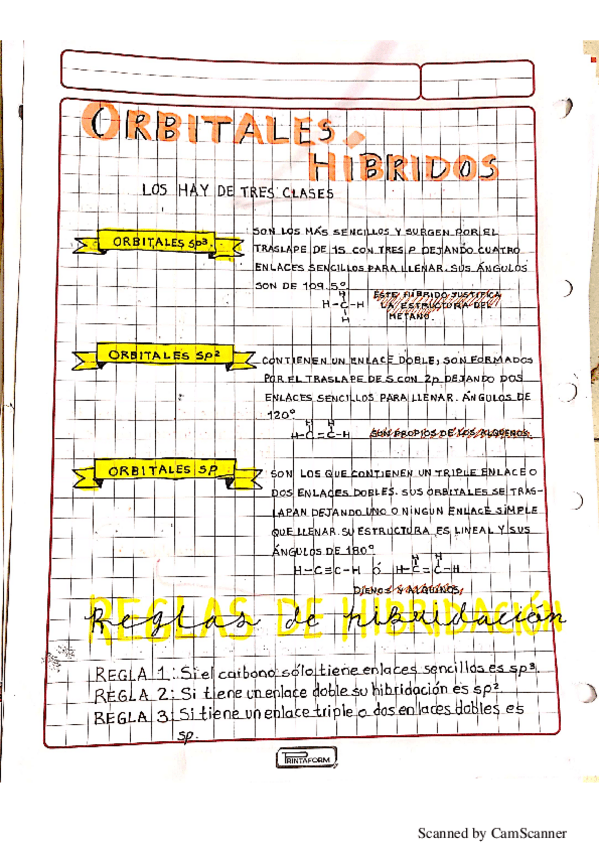 ORBITALES
HÍBRIDOS
LOS HAY DE TRES CLASES
ORBITALES sp³.
SON LOS MÁS SENCILLOS Y SURGEN POR EL
TRASLAPE DE 1S CON TRES P DEJANDO CUATRO
ENLACES SENCILLOS PARA LLENAR. SUS ÁNGULOS
SON DE 109.5°
H
H-C-H
H
ESTE HÍBRIDO JUSTIFICA
LA ESTRUCTURA DEL
METANO.
ORBITALES Sp²
CONTIENEN UN ENLACE DOBLE, SON FORMADOS
POR EL TRASLAPE DE S CON 2p DEJANDO DOS
ENLACES SENCILLOS PARA LLENAR. ÁNGULOS DE
120°
H H
H-C=C-H
SON PROPIOS DE LOS ALQUENOS.
ORBITALES SP
SON LOS QUE CONTIENEN UN TRIPLE ENLACE O
DOS ENLACES DOBLES. SUS ORBITALES SE TRAS-
LAPAN DEJANDO UNO O NINGUN ENLACE SIMPLE
QUE LLENAR. SU ESTRUCTURA ES LINEAL Y SUS
ÁNGULOS DE 180°
H H
H-C≡C-H Ó H-C=C-H
DIENOS Y ALQUINOS.
REGLAS DE HIBRIDACIÓN
Reglas de hibridación
REGLA 1: Si el carbono sólo tiene enlaces sencillos es sp³.
REGLA 2: Si tiene un enlace doble su hibridación es sp²
REGLA 3: Si tiene un enlace triple o dos enlaces dobles es
sp.
PRINTAFORM
Scanned by CamScanner